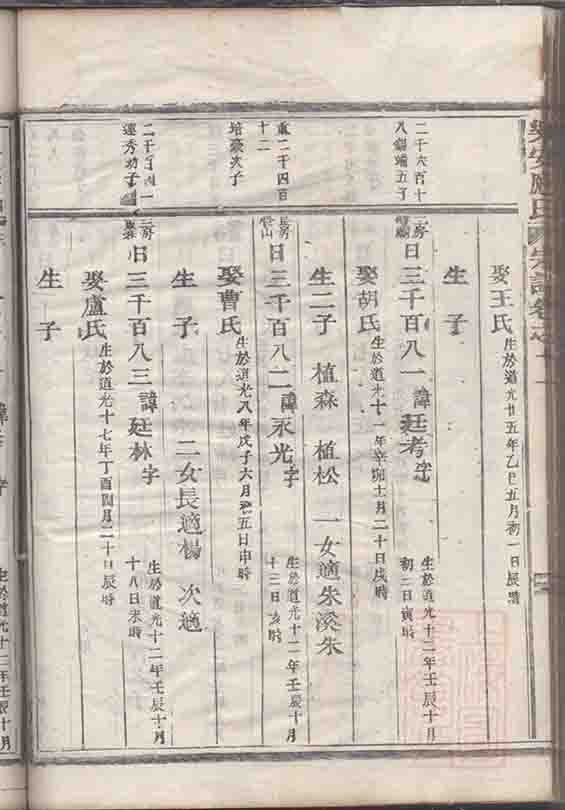 娶王氏
生於道光廿五年乙巳五月初一日辰時
生 子
二千六百十
八錫端五子
二房
曰三千百八一諱廷考字
生於道光十二年壬辰十月
初三日寅時
娶胡氏
生於道光十一年辛卯十月二十日戌時
生二子 植森 植松 一女適朱溪朱
重二千四百
十二
長房
曰三千百八二諱永光字
生於道光十二年壬辰十月
十三日亥時
培豪次子
娶曹氏
生於道光八年戊子六月初五日申時
生 子 二女長適楊 次適
三房
曰三千百八三諱廷林字
生於道光十二年壬辰十月
十八日未時
娶盧氏
生於道光十七年丁酉閏月二十日辰時
生 子